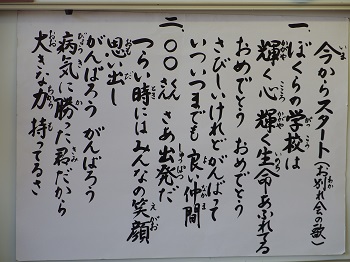 今からスタート(お別れ会の歌)
一、ぼくらの学校は
輝く心 輝く生命あふれてる
おめでとう おめでとう
さびしいけれどがんばって
いついつまでも 良い仲間
二、〇〇さん さあ出発だ
つらい時にはみんなの笑顔
思い出し
がんばろう がんばろう
病気に勝った君だから
大きな力 持ってるさ